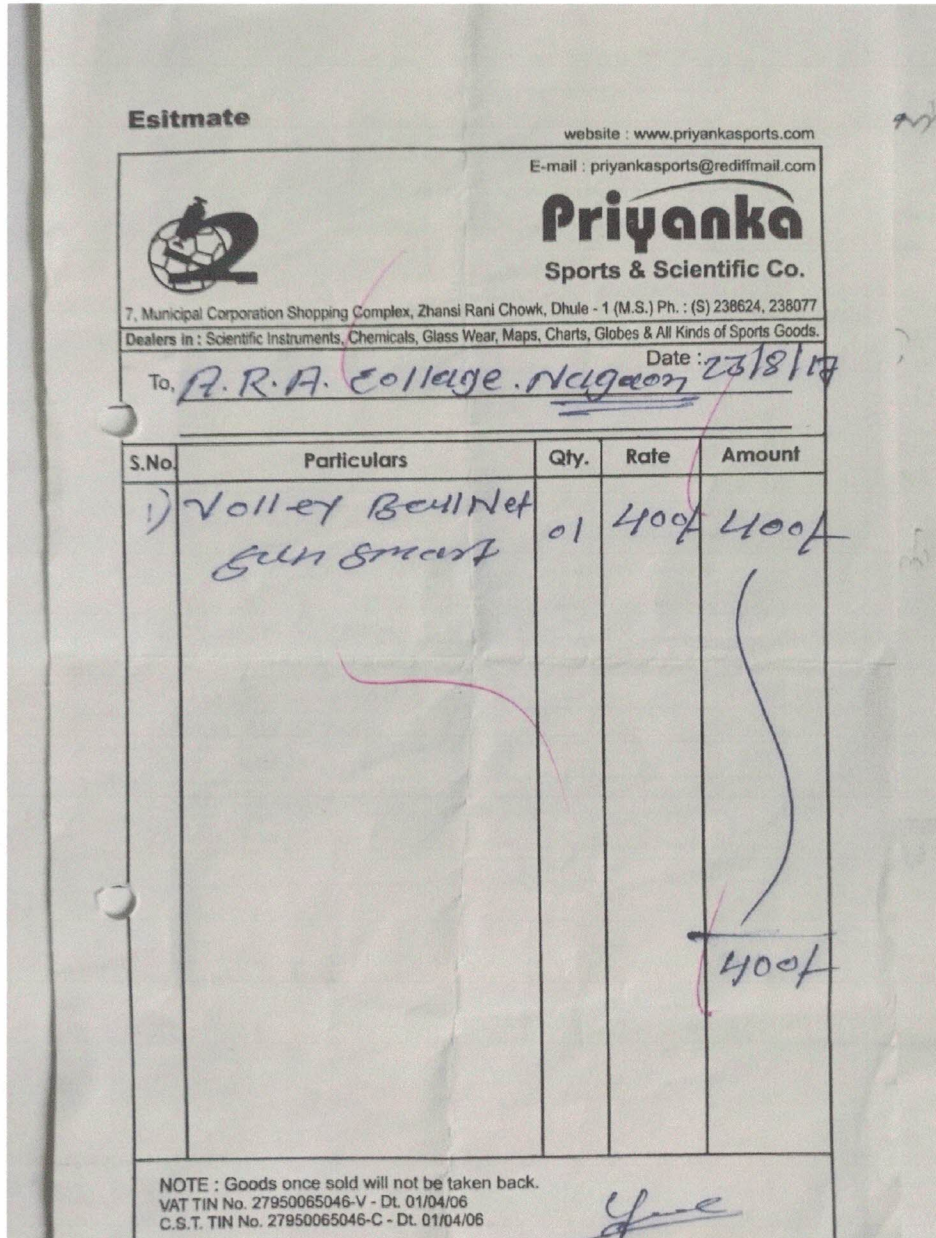 Esitmate
website : www.priyankasports.com
E-mail : priyankasports@rediffmail.com
Priyanka
Sports & Scientific Co.
7, Municipal Corporation Shopping Complex, Zhansi Rani Chowk, Dhule - 1 (M.S.) Ph. : (S) 238624, 238077
Dealers in : Scientific Instruments, Chemicals, Glass Wear, Maps, Charts, Globes & All Kinds of Sports Goods.
Date : 23/8/17
To, A.R.A. Collage. Nagaon
S.No. Particulars Qty. Rate Amount
1) Volley Ball Net 01 400/- 400/-
Smart
400/-
NOTE : Goods once sold will not be taken back.
VAT TIN No. 27950065046-V - Dt. 01/04/06
C.S.T. TIN No. 27950065046-C - Dt. 01/04/06